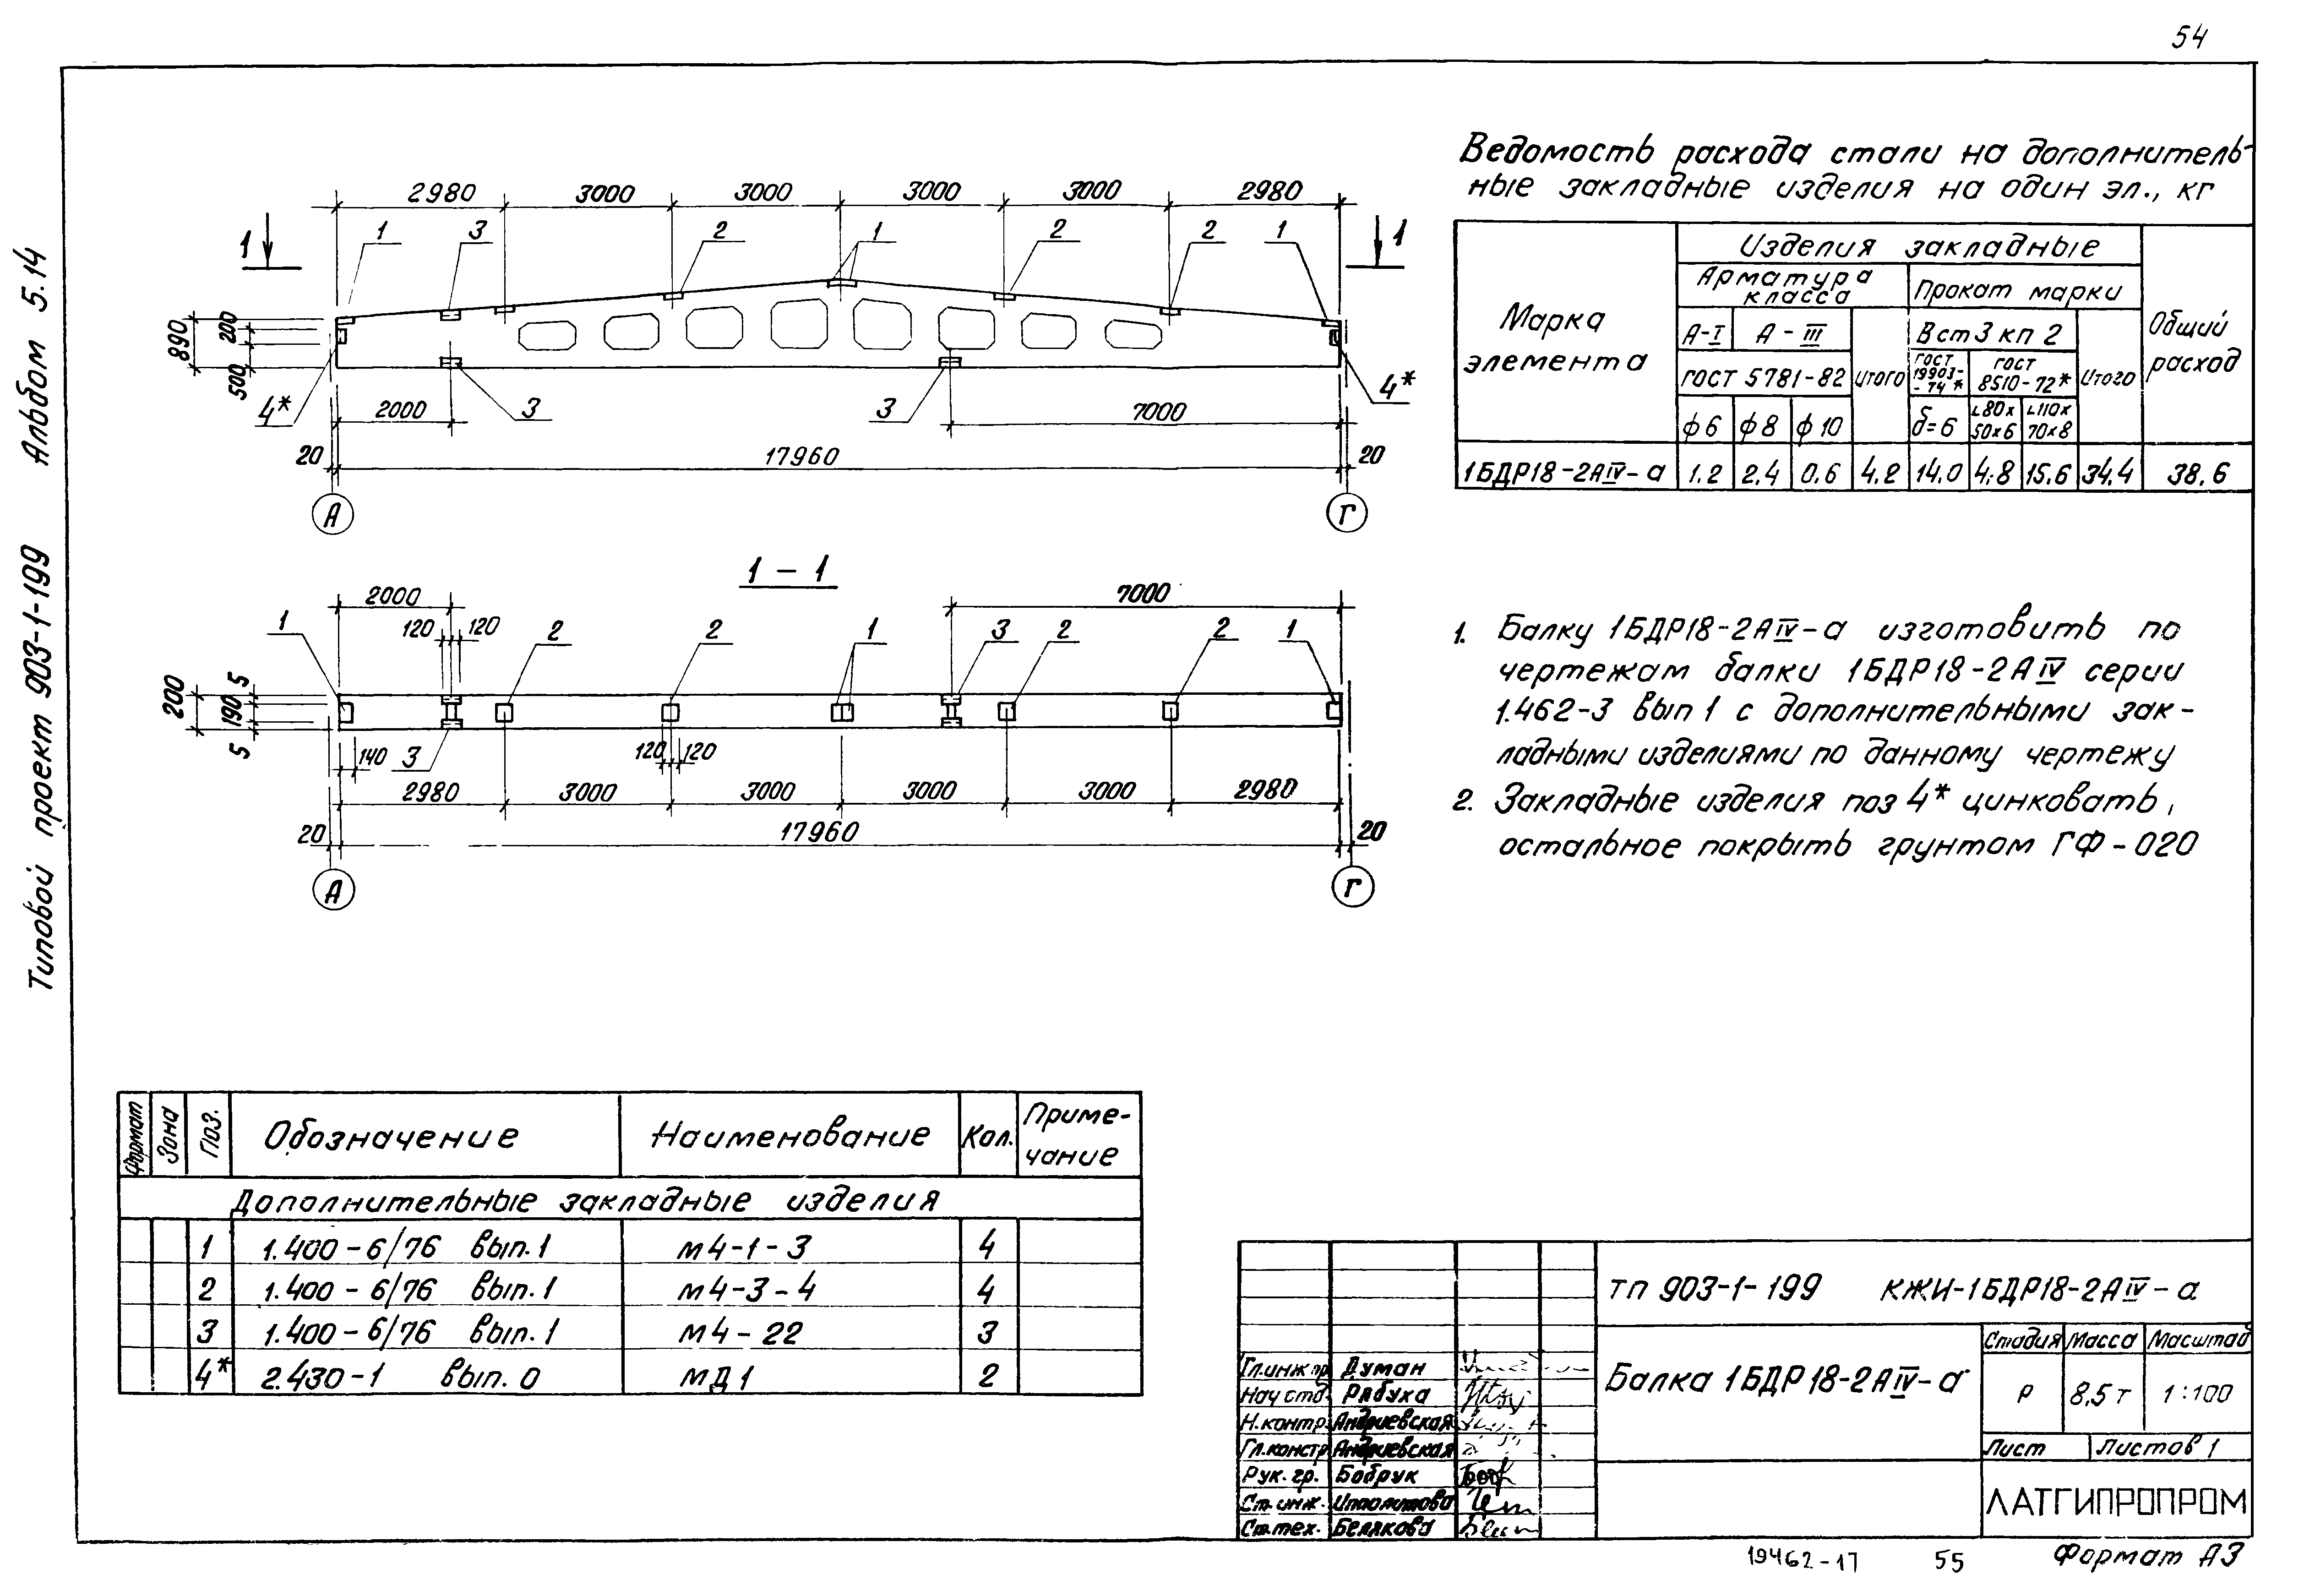 54
Типовой проект 903-1-199 Альбом 5.14
2980 3000 3000 3000 3000 2980
1 1 3 2 1 2 2 1 1
890 200 500
4* 2000 3 3 7000 4*
20 17960 20
А Г
1 – 1
2000 7000
1 120 120 2 2 1 3 2 2 1
200 5 190 5
140 3 120 120
2980 3000 3000 3000 3000 2980
20 17960 20
А Г
Ведомость расхода стали на дополнитель-
ные закладные изделия на один эл., кг
Марка элемента
Изделия закладные
Общий расход
Арматура класса
Прокат марки
А-I А-III Вст3 кп 2
ГОСТ 5781-82 Итого ГОСТ 19903-74* ГОСТ 8510-72* Итого
ф6 ф8 ф10 δ=6 L80х50х6 L110х70х8
1БДР18-2АIV-а 1.2 2.4 0.6 4.2 14.0 4.8 15.6 34.4 38.6
1. Балку 1БДР18-2АIV-а изготовить по
чертежам балки 1БДР18-2АIV серии
1.462-3 вып 1 с дополнительными зак-
ладными изделиями по данному чертежу
2. Закладные изделия поз 4* цинковать,
остальное покрыть грунтом ГФ-020
Формат Зона Поз. Обозначение Наименование Кол. Приме-
чание
Дополнительные закладные изделия
1 1.400-6/76 вып.1 м4-1-3 4
2 1.400-6/76 вып.1 м4-3-4 4
3 1.400-6/76 вып.1 м4-22 3
4* 2.430-1 вып.0 мД1 2
тп 903-1-199 КЖИ-1БДР18-2АIV-а
Балка 1БДР18-2АIV-а
Стадия Масса Масштаб
Р 8,5т 1:100
Лист Листов 1
ЛАТГИПРОПРОМ
Гл.инж.пр. Думан
Нач отд. Рябуха
Н.контр. Андриевская
Гл.констр Андриевская
Рук.гр. Бобрук
Ст.инж. Ипполитова
Ст.тех. Белякова
19462-17 55 Формат А3